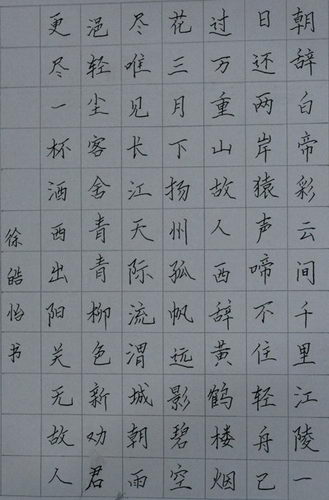 朝辞白帝彩云间千里江陵一
日还两岸猿声啼不住轻舟已
过万重山故人西辞黄鹤楼烟
花三月下扬州孤帆远影碧空
尽唯见长江天际流渭城朝雨
浥轻尘客舍青青柳色新劝君
更尽一杯酒西出阳关无故人
徐皓怡书